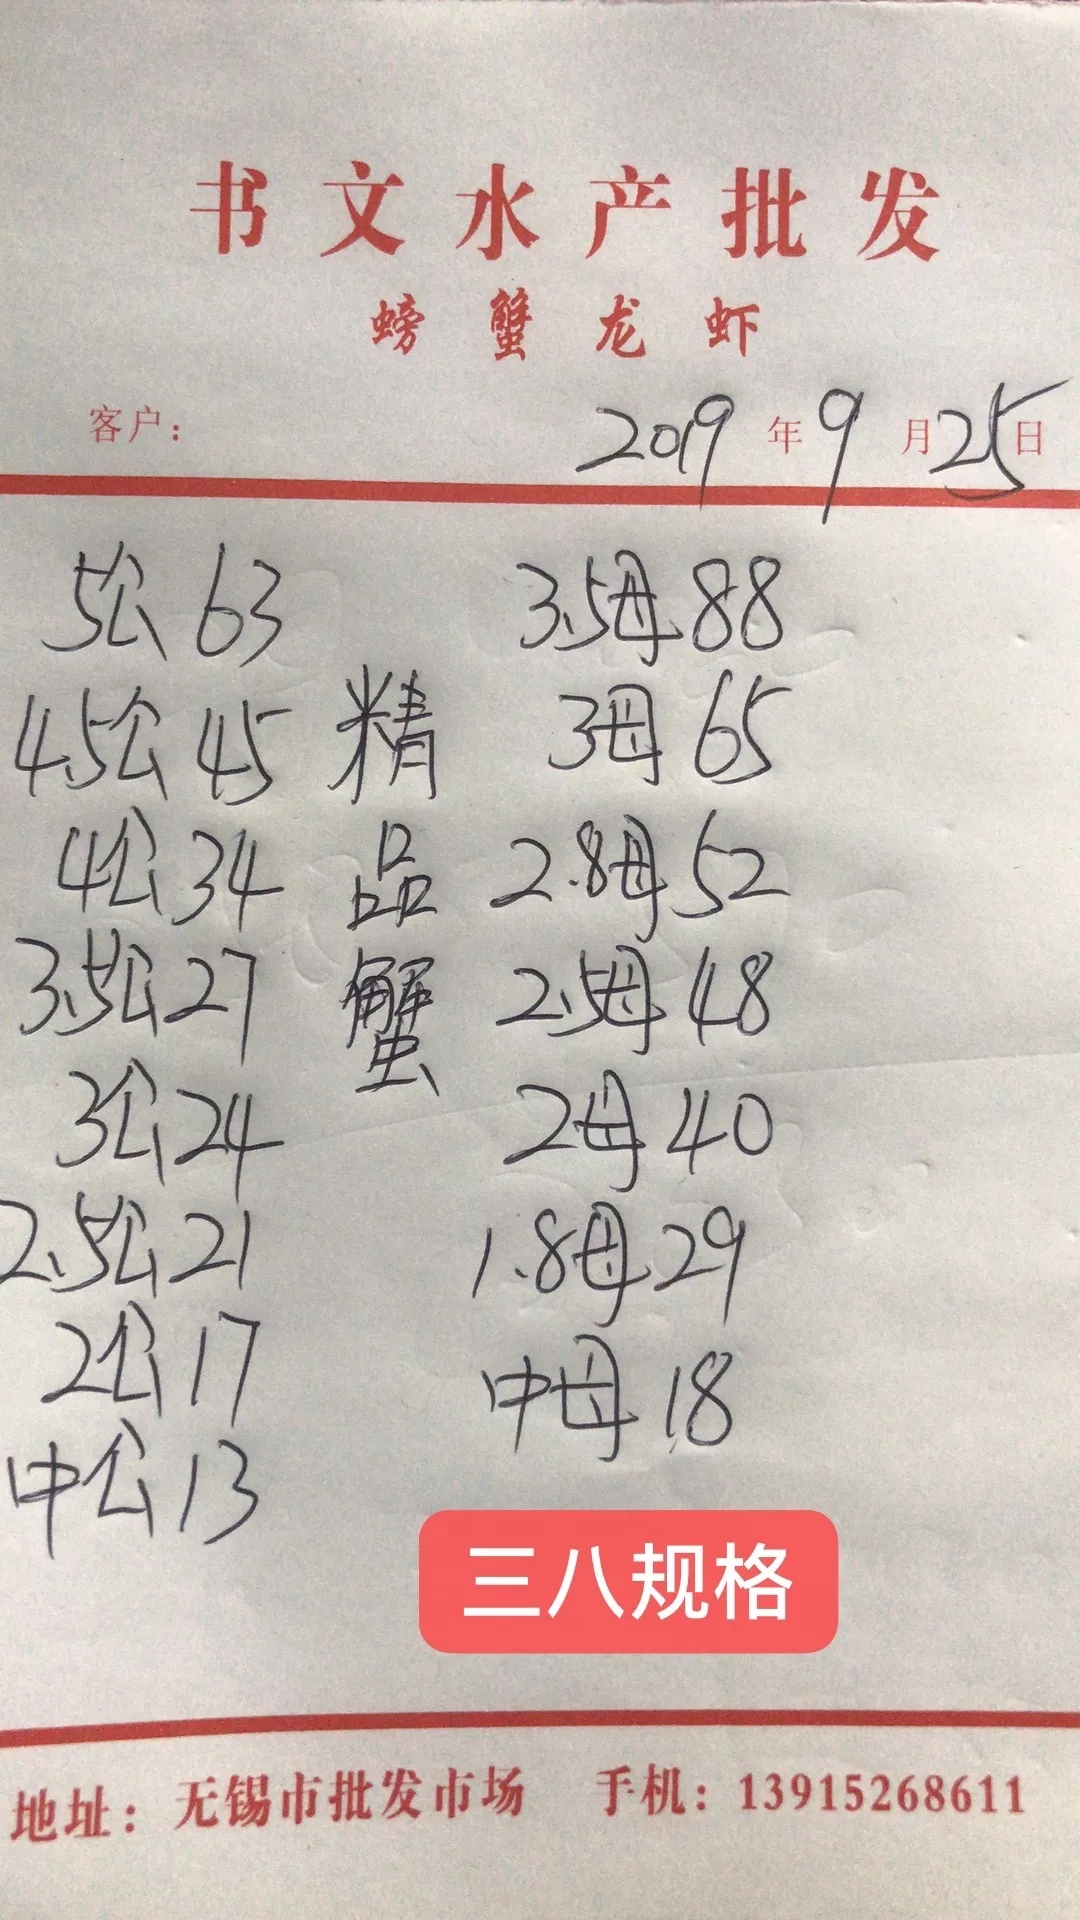 书文水产批发
螃蟹龙虾
客户：
2019年9月25日
5公 63
4.5公 45
4公 34
3.5公 27
3公 24
2.5公 21
2公 17
中公 13
精品蟹
3.5母 88
3母 65
2.8母 52
2.5母 48
2母 40
1.8母 29
中母 18
三八规格
地址：无锡市批发市场 手机：13915268611